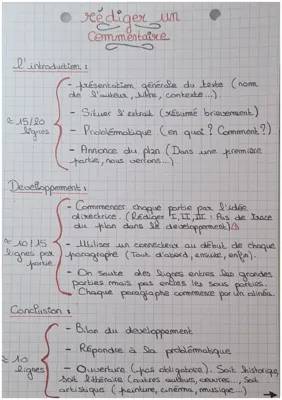 rédiger un
commentaire
L'introduction :
- présentation générale du texte (nom
de l'auteur, titre, contexte...)
- Situer l'extrait (résumé brièvement)
- Problématique (en quoi ? Comment ?)
- Annonce du plan (Dans une première
partie, nous verrons...)
≈ 15/20
lignes
Développement :
- Commencer chaque partie par l'idée
directrice. (Rédiger I, II, III : Pas de trace
du plan dans le développement)
- Utiliser un connecteur au début de chaque
paragraphe (Tout d'abord, ensuite, enfin).
- On saute des lignes entres les grandes
parties mais pas entre les sous parties.
- Chaque paragraphe commence par un alinéa.
≈ 10/15
lignes par
partie
Conclusion :
- Bilan du développement
- Répondre à la problématique
- Ouverture (pas obligatoire). Soit historique,
soit littéraire (autres auteurs, œuvres..., Soit
artistique (peinture, cinéma, musique...)
≈ 10
lignes